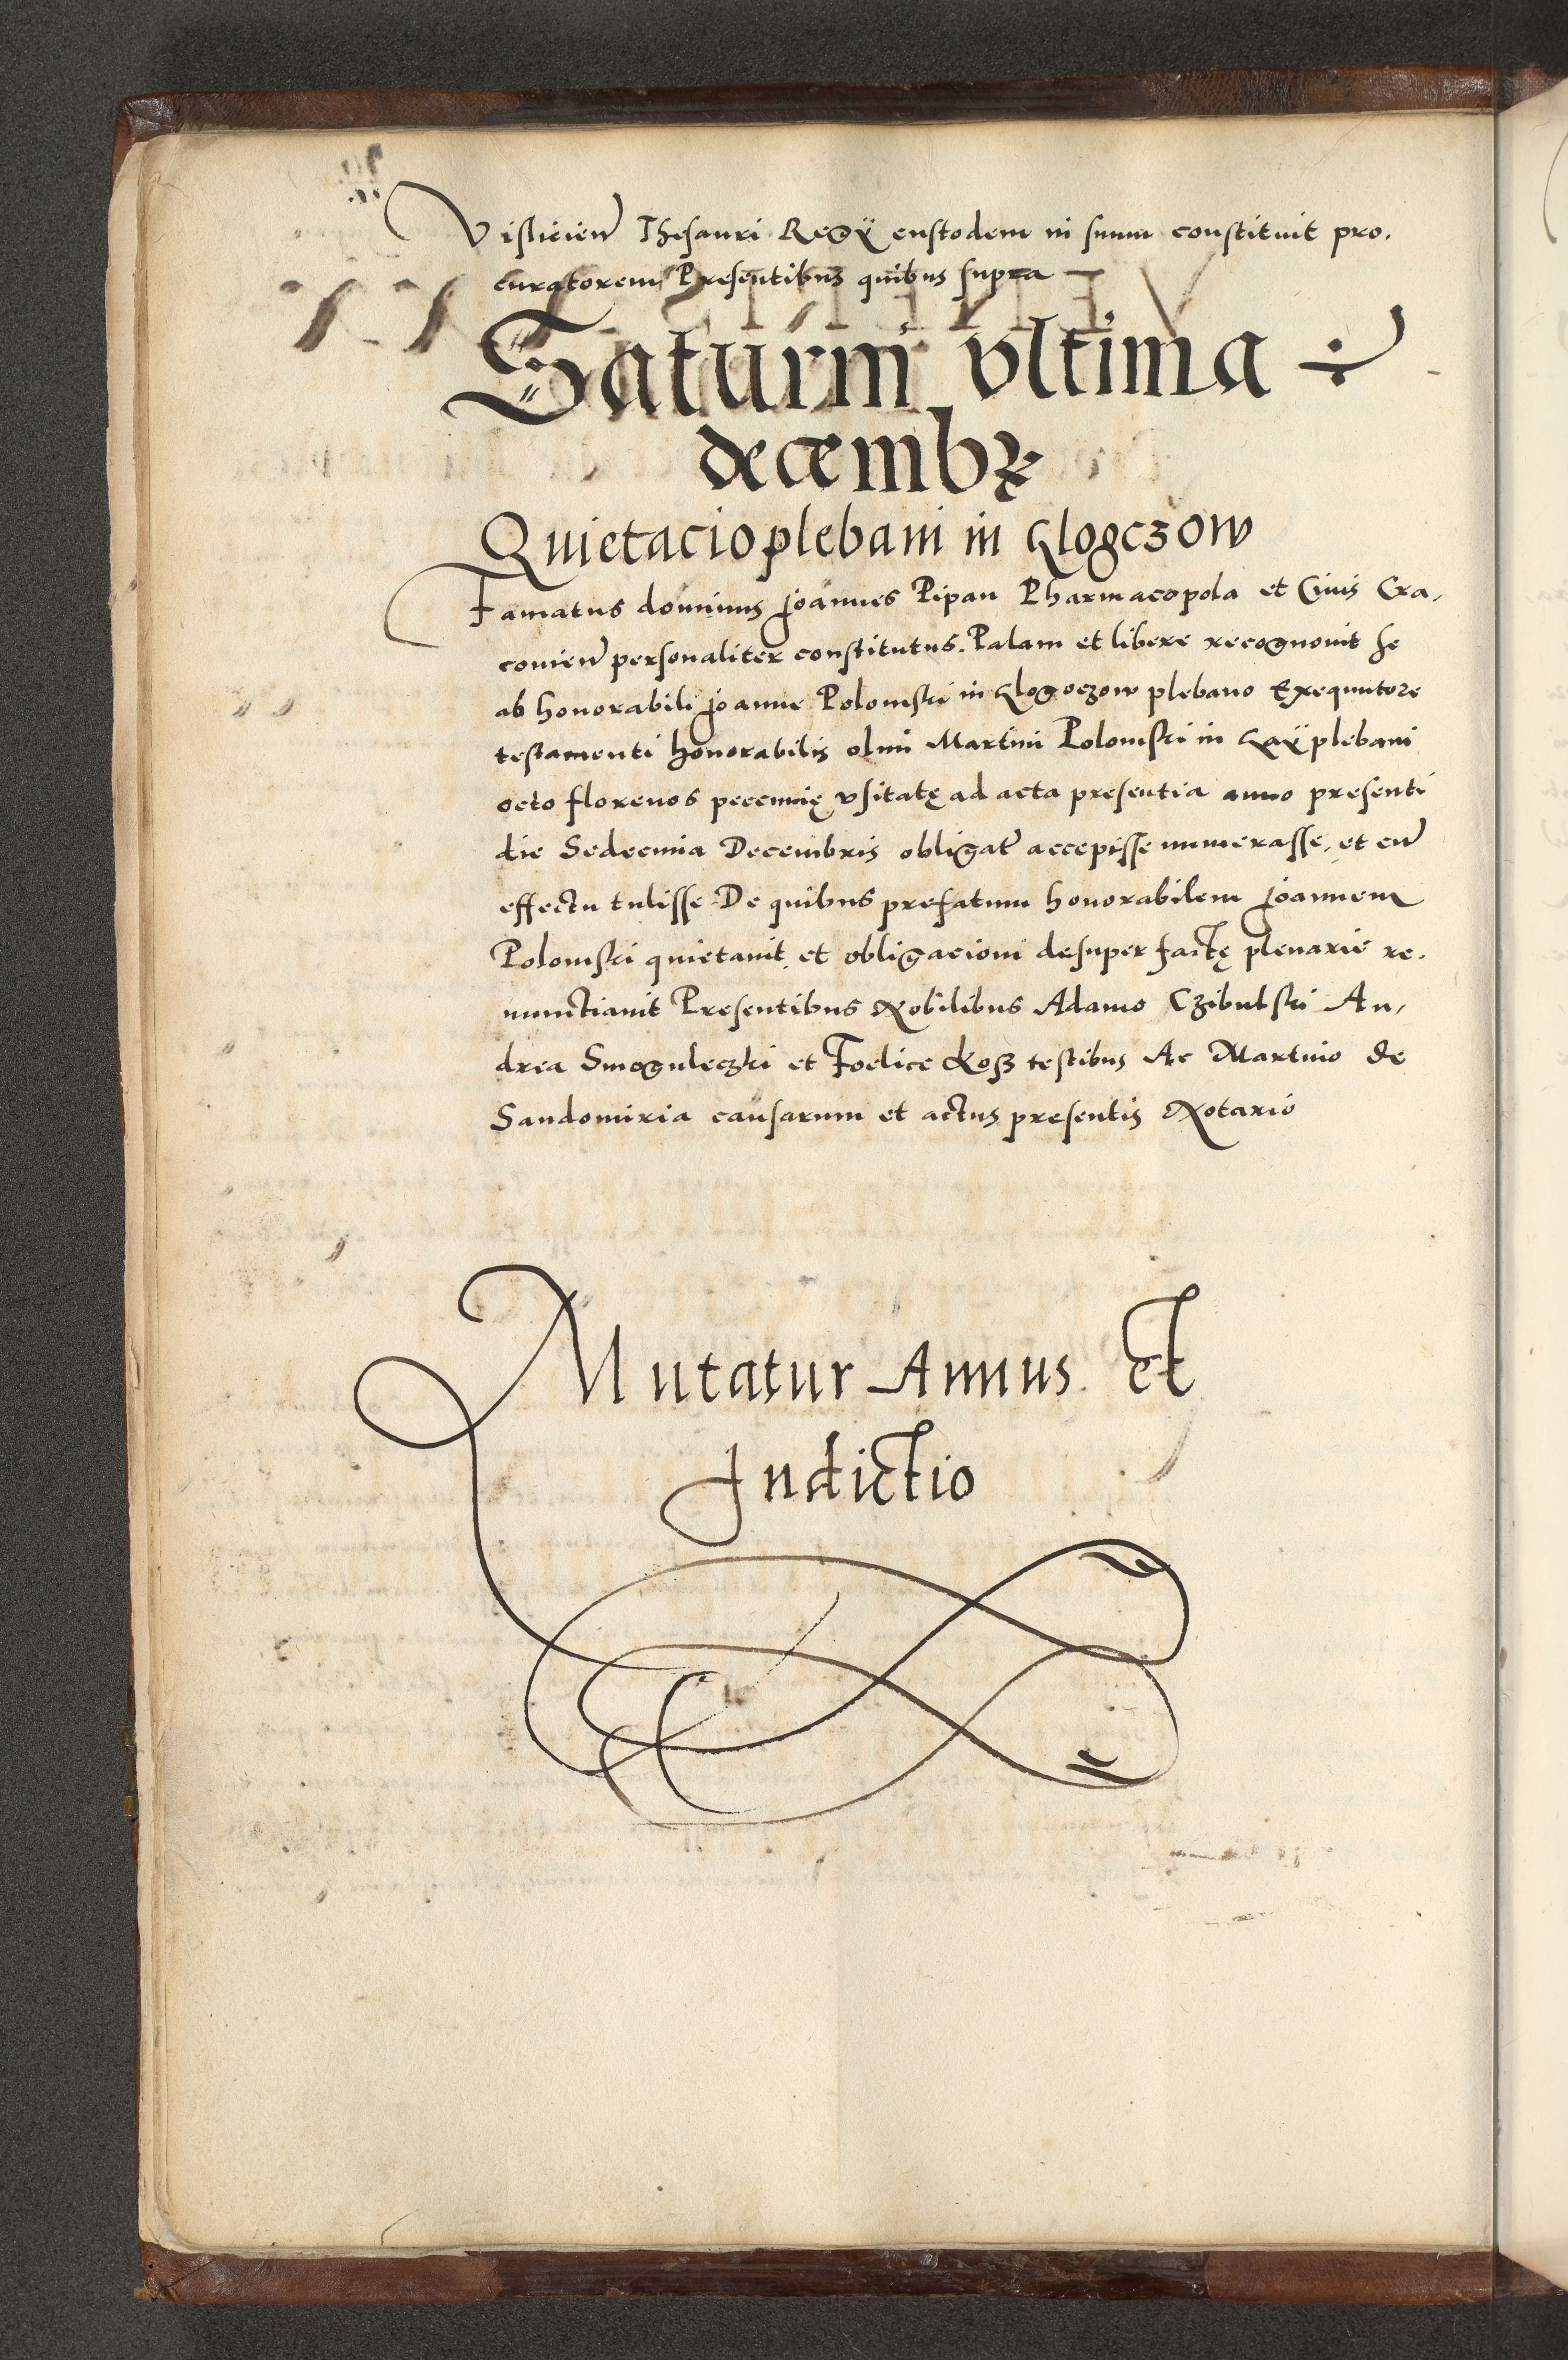 Visliciens Thesauri Regÿ custodem in suum constituit pro,
curatorem Presentibus quibus supra
Saturni vltima
decembr
Quietacio plebani in Glogczow
Famatus dominus Joannes Pipan Pharmacopola et Ciuis Cra,
couien personaliter constitutus. Palam et libere recognouit se
ab honorabili Joanne Polomski in Glogoczow plebano Exequutore
testamenti honorabilis olim Martini Polomski in Gaÿ plebani
octo florenos pecunię vsitatę ad acta presentia anno presenti
die Sedecima Decembris obligat accepisse numerasse, et cu
effectu tulisse De quibus prefatum honorabilem Joannem
Polomski quietauit et obligacioni desuper factę plenarie re,
nunctiauit Presentibus Nobilibus Adamo Czibulski An,
drea Smoguleczki et Foelice Kosz testibus Ac Martino de
Sandomiria causarum et actus presentis Notario
Mutatur Annus et
Indictio